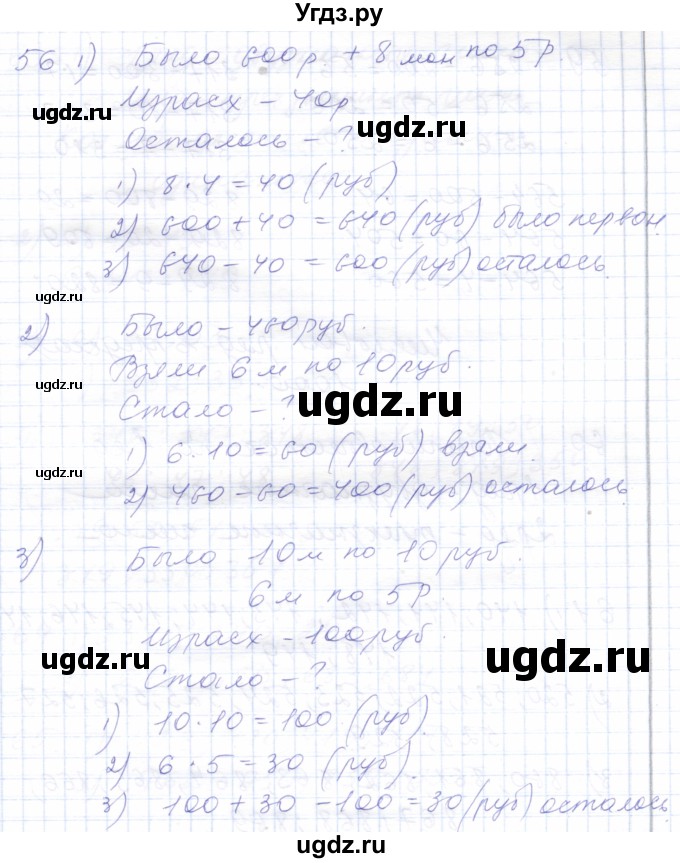 Угдз.ру
56 1) Было 600р + 8 мон по 5Р.
ugdz.ru
Израсх - 40р
ugdz.ru
Осталось - ?
1) 8 · 4 = 40 (руб).
2) 600 + 40 = 640 (руб) было первон.
3) 640 - 40 = 600 (руб) осталось.
ugdz.ru
2) Было - 460 руб.
Взяли 6 м по 10 руб.
ugdz.ru
Стало - ?
1) 6 · 10 = 60 (руб) взяли.
ugdz.ru
2) 460 - 60 = 400 (руб) осталось
3) Было 10 м по 10 руб.
6 м по 5Р
Израсх - 100 руб.
ugdz.ru
ugdz.ru
Стало - ?
1) 10 · 10 = 100 (руб).
2) 6 · 5 = 30 (руб).
3) 100 + 30 - 100 = 30 (руб) осталось
ugdz.ru